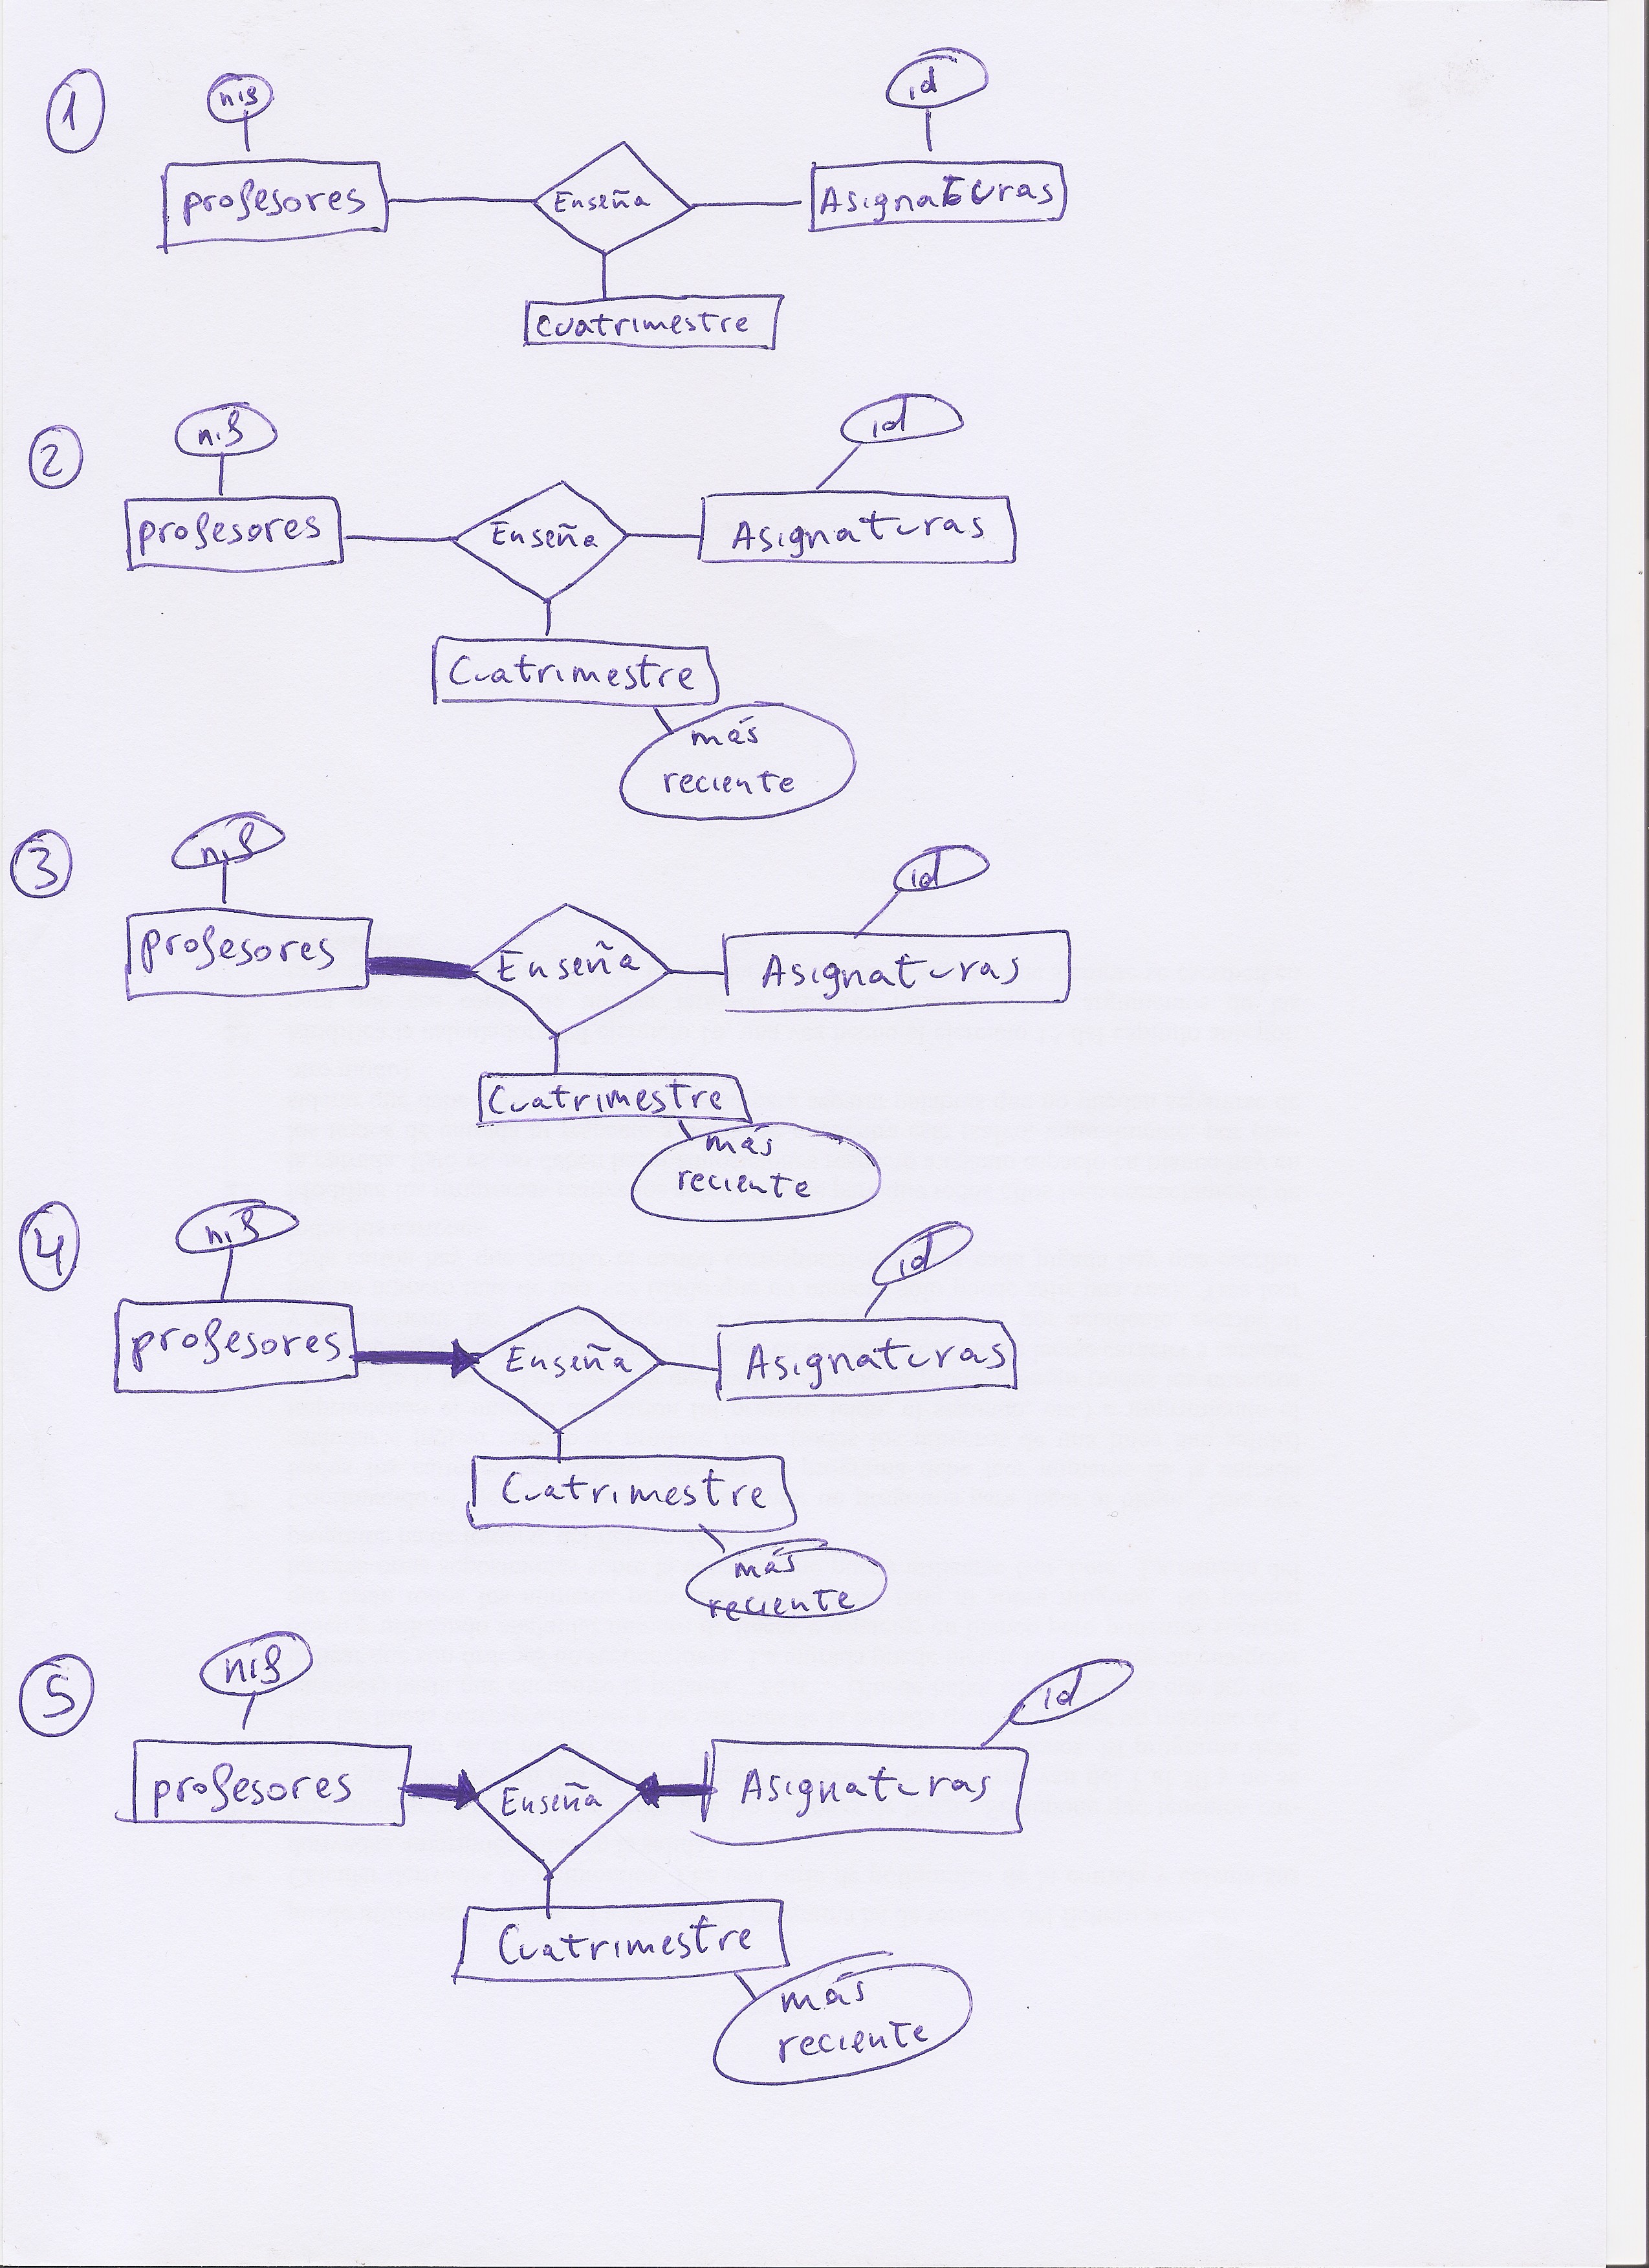 1
nif
id
profesores
Enseña
Asignaturas
Cuatrimestre
2
nif
id
profesores
Enseña
Asignaturas
Cuatrimestre
más
reciente
3
nif
id
profesores
Enseña
Asignaturas
Cuatrimestre
más
reciente
4
nif
id
profesores
Enseña
Asignaturas
Cuatrimestre
más
reciente
5
nif
id
profesores
Enseña
Asignaturas
Cuatrimestre
más
reciente